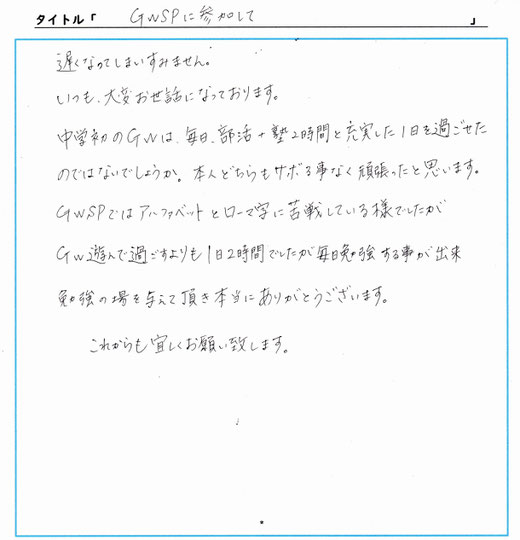 タイトル「 GWSPに参加して 」
遅くなってしまいすみません。
いつも、大変お世話になっております。
中学初のGWは、毎日、部活+塾2時間と充実した1日を過ごせた
のではないでしょうか。本人どちらもサボる事なく頑張ったと思います。
GWSPではアルファベットとローマ字に苦戦している様でしたが
GW遊んで過ごすよりも1日2時間でしたが毎日勉強する事が出来
勉強の場を与えて頂き本当にありがとうございます。
これからも宜しくお願い致します。